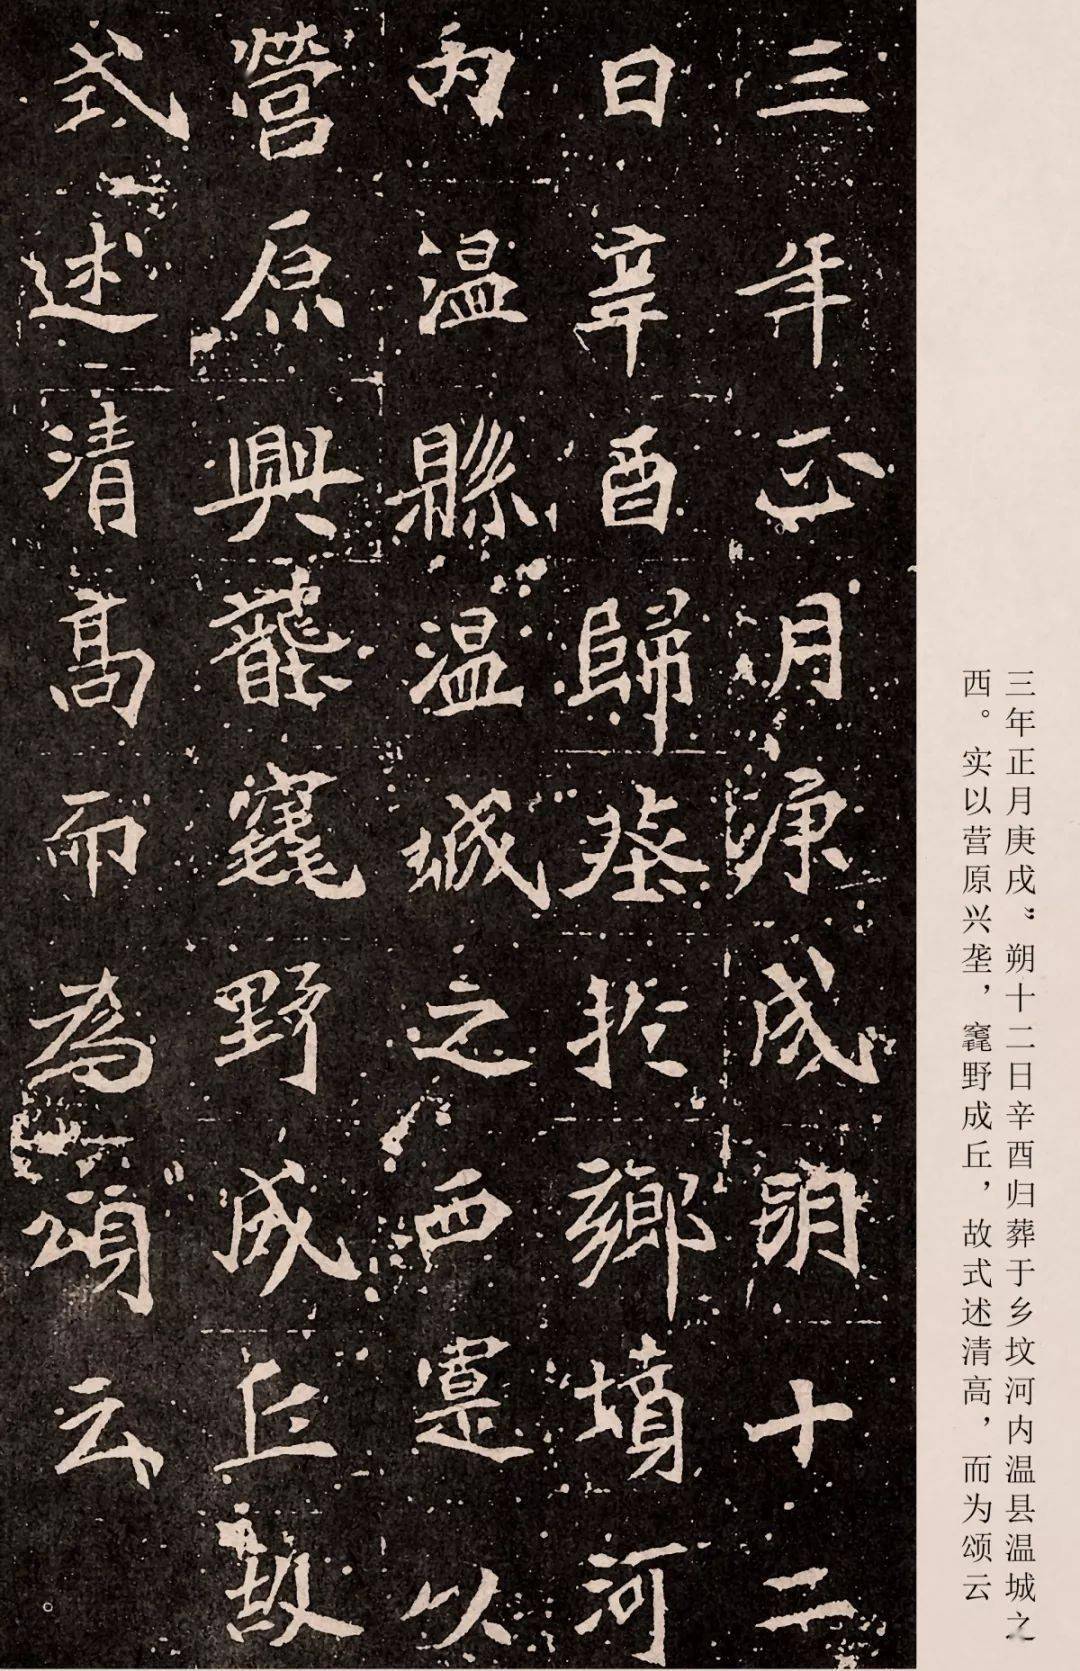 三年正月庚戌”朔十二日辛酉归葬于乡坟河内温县温城之
西。实以营原兴垄，竁野成丘，故式述清高，而为颂云
三年正月庚戌朔十二
日辛酉歸葬於鄉墳河
内温縣温城之西寔以
營原興壟竁野成丘故
式述清高而為頌云